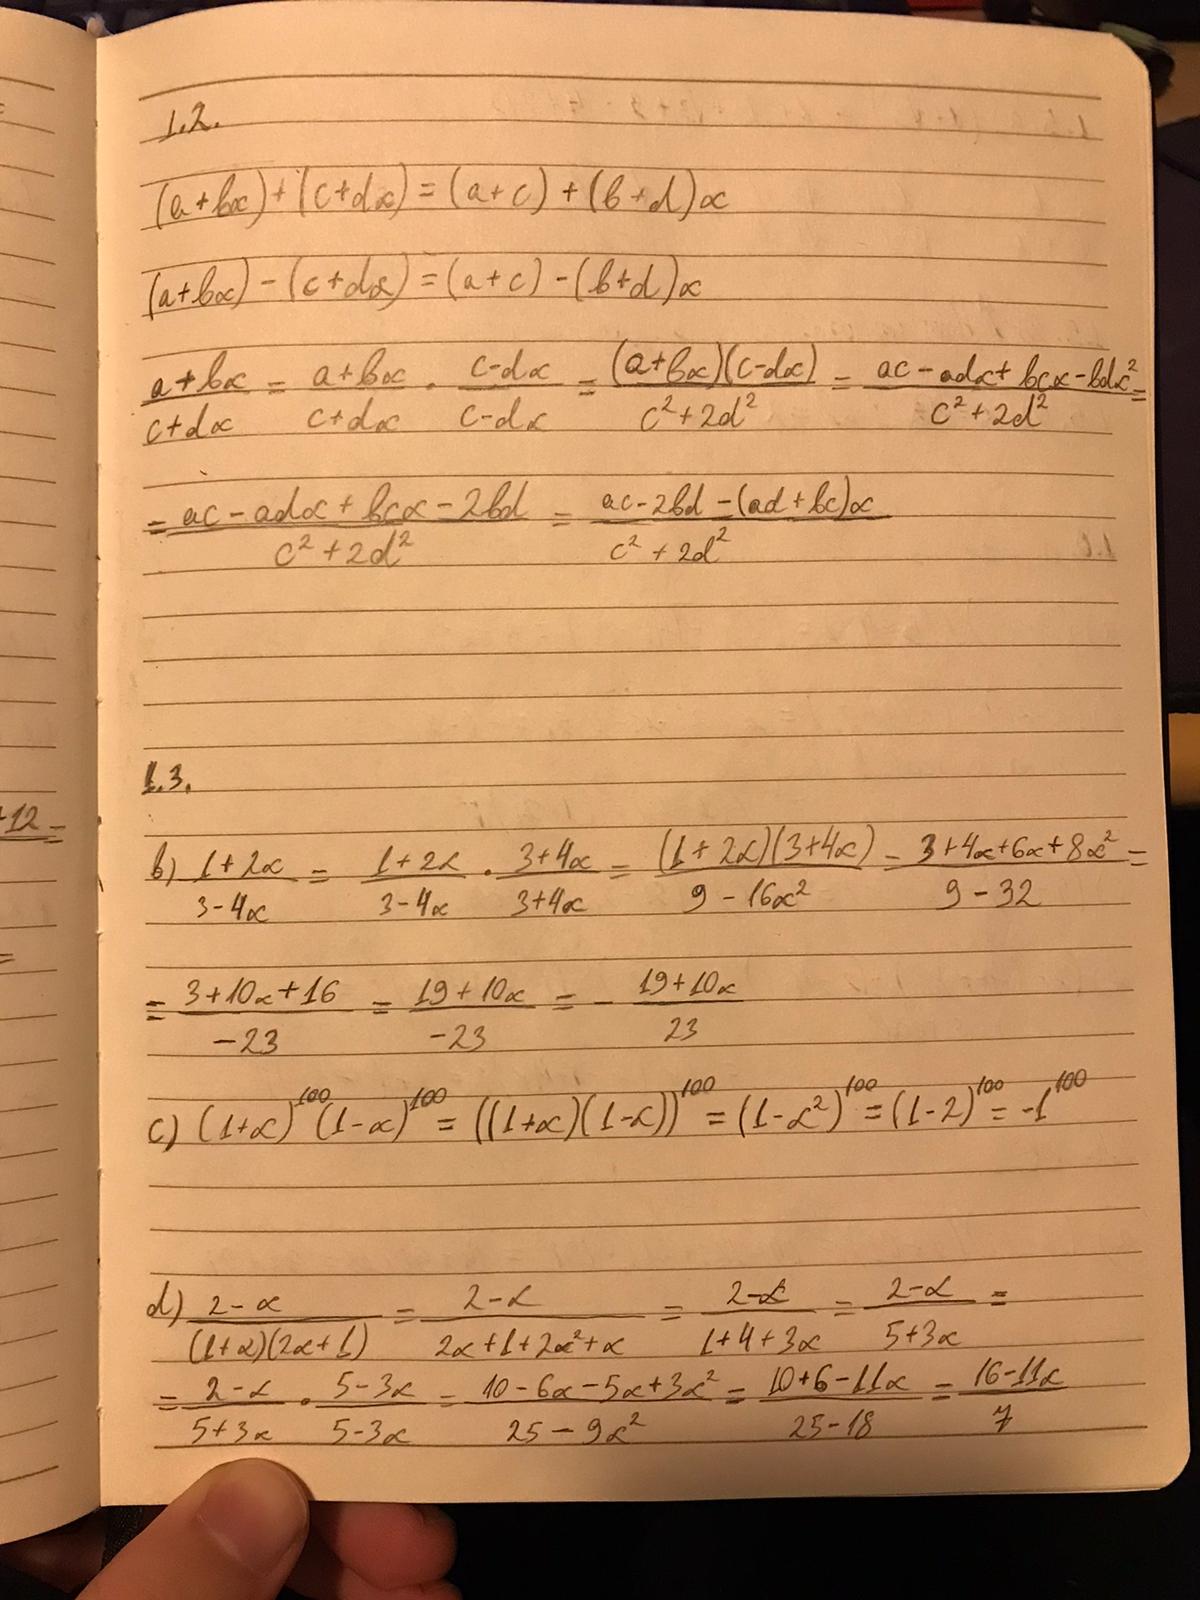 1.2.
(a+bα)+(c+dα)=(a+c)+(b+d)α
(a+bα)-(c+dα)=(a+c)-(b+d)α
(a+bα)/(c+dα) = (a+bα)/(c+dα) · (c-dα)/(c-dα) = ((a+bα)(c-dα))/(c²+2d²) = (ac-adα+bcα-bdα²)/(c²+2d²) =
= (ac-adα+bcα-2bd)/(c²+2d²) = (ac-2bd-(ad+bc)α)/(c²+2d²)
1.3.
+12 =
b) (1+2α)/(3-4α) = (1+2α)/(3-4α) · (3+4α)/(3+4α) = ((1+2α)(3+4α))/(9-16α²) = (3+4α+6α+8α²)/(9-32) =
= (3+10α+16)/(-23) = (19+10α)/(-23) = - (19+10α)/23
c) (1+α)¹⁰⁰(1-α)¹⁰⁰ = ((1+α)(1-α))¹⁰⁰ = (1-α²)¹⁰⁰ = (1-2)¹⁰⁰ = -1¹⁰⁰
d) (2-α)/((1+α)(2α+1)) = (2-α)/(2α+1+2α²+α) = (2-α)/(1+4+3α) = (2-α)/(5+3α) =
= (2-α)/(5+3α) · (5-3α)/(5-3α) = (10-6α-5α+3α²)/(25-9α²) = (10+6-11α)/(25-18) = (16-11α)/7